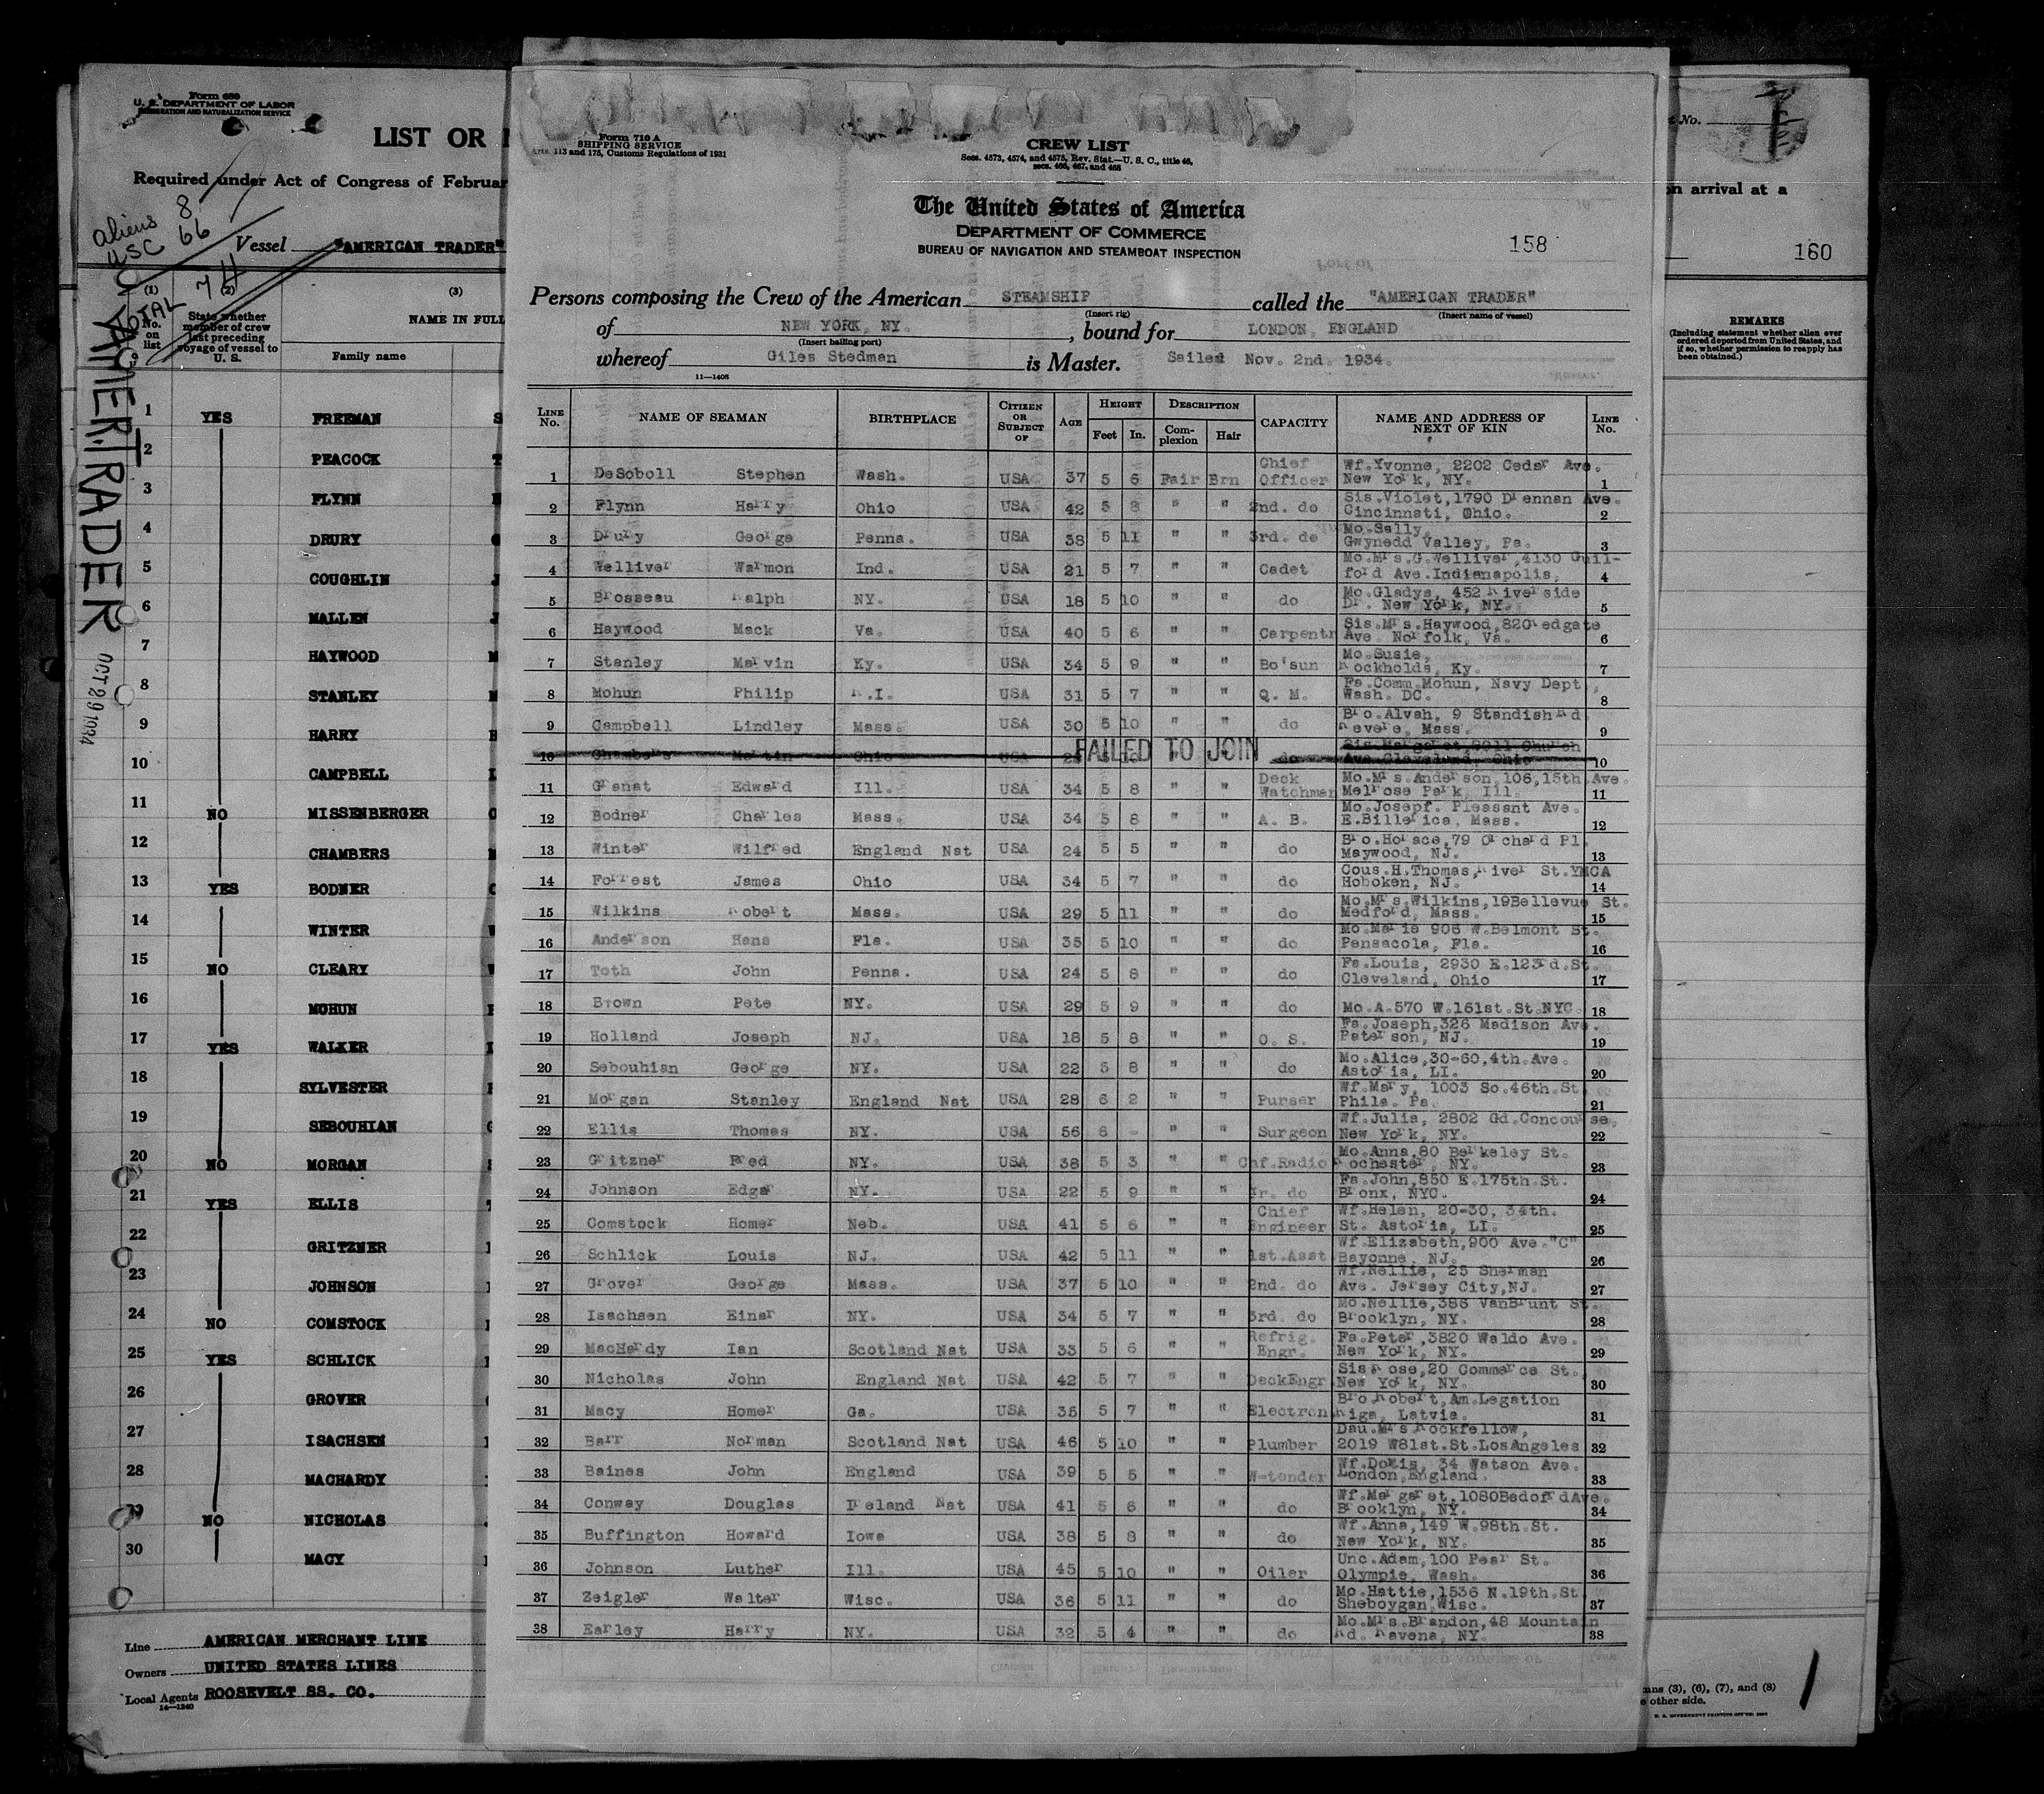 Form 689
U. S. DEPARTMENT OF LABOR
IMMIGRATION AND NATURALIZATION SERVICE
LIST OR
Required under Act of Congress of Februar
aliens 8
USC 66
TOTAL 74
Vessel "AMERICAN TRADER"
AMER.TRADER
OCT 29 1934
(1) (2) (3)
No. on list
State whether member of crew last preceding voyage of vessel to U. S.
NAME IN FULL
Family name
1 YES FREEMAN S
2 PEACOCK T
3 FLYNN
4 DRURY
5 COUGHLIN J
6 MALLEN J
7 HAYWOOD M
8 STANLEY M
9 HARRY
10 CAMPBELL L
11 NO MISSENBERGER
12 CHAMBERS M
13 YES BODNER
14 WINTER W
15 NO CLEARY
16 MOHUN
17 YES WALKER
18 SYLVESTER
19 SEBOUHIAN
20 NO MORGAN
21 YES ELLIS T
22 GRITZNER
23 JOHNSON
24 NO COMSTOCK
25 YES SCHLICK
26 GROVER
27 ISACHSEN
28 MACHARDY
29 NO NICHOLAS
30 MACY
Line AMERICAN MERCHANT LINE
Owners UNITED STATES LINES
Local Agents ROOSEVELT SS. CO.
14—1240
Form 710 A
SHIPPING SERVICE
Arts. 113 and 175, Customs Regulations of 1931
CREW LIST
Secs. 4573, 4574, and 4575, Rev. Stat.—U. S. C., title 46,
secs. 466, 467, and 468
The United States of America
DEPARTMENT OF COMMERCE
BUREAU OF NAVIGATION AND STEAMBOAT INSPECTION
158
Persons composing the Crew of the American STEAMSHIP called the "AMERICAN TRADER"
(Insert rig) (Insert name of vessel)
of NEW YORK, NY. , bound for LONDON, ENGLAND
(Insert hailing port)
whereof Giles Stedman is Master. Sailed Nov. 2nd. 1934.
11—1406
LINE No. NAME OF SEAMAN BIRTHPLACE CITIZEN OR SUBJECT OF AGE HEIGHT Feet In. DESCRIPTION Complexion Hair CAPACITY NAME AND ADDRESS OF NEXT OF KIN LINE No.
1 DeSoboll Stephen Wash. USA 37 5 6 Fair Brn Chief Officer Wf.Yvonne, 2202 Cedar Ave. New York, NY. 1
2 Flynn Harry Ohio USA 42 5 8 " " 2nd. do Sis.Violet,1790 Drennan Ave. Cincinnati, Ohio. 2
3 Drury George Penna. USA 38 5 11 " " 3rd. do Mo.Sally, Gwynedd Valley, Pa. 3
4 Welliver Warmon Ind. USA 21 5 7 " " Cadet Mo.Mrs.G.Welliver,4130 Guilford Ave.Indianapolis. 4
5 Brosseau Ralph NY. USA 18 5 10 " " do Mo.Gladys, 452 Riverside Dr. New York, NY. 5
6 Haywood Mack Va. USA 40 5 6 " " Carpentr Sis.Mrs.Haywood,820 edgate Ave. Norfolk, Va. 6
7 Stanley Marvin Ky. USA 34 5 9 " " Bo'sun Mo.Susie, Rockholds, Ky. 7
8 Mohun Philip R.I. USA 31 5 7 " " Q. M. Fa.Comm.Mohun, Navy Dept, Wash. DC. 8
9 Campbell Lindley Mass. USA 30 5 10 " " do Bro.Alvah, 9 Standish Rd Revere, Mass. 9
10 Chambers Martin Ohio USA FAILED TO JOIN do Sis.Margaret, Church Ave.Cleveland, Ohio 10
11 Granat Edward Ill. USA 34 5 8 " " Deck Watchman Mo.Mrs.Anderson,106,15th.Ave. Melrose Park, Ill. 11
12 Bodner Charles Mass. USA 34 5 8 " " A. B. Mo.Josepf. Pleasant Ave. E.Billerica, Mass. 12
13 Winter Wilfred England Nat USA 24 5 5 " " do Bro.Horace,79 Orchard Pl. Maywood, NJ. 13
14 Forrest James Ohio USA 34 5 7 " " do Cous.H.Thomas,River St.YMCA Hoboken, NJ. 14
15 Wilkins Robert Mass. USA 29 5 11 " " do Mo.Mrs.Wilkins,19Bellevue St. Medford, Mass. 15
16 Anderson Hans Fla. USA 35 5 10 " " do Mo.Marie 906 W.Belmont St. Pensacola, Fla. 16
17 Toth John Penna. USA 24 5 8 " " do Fa.Louis, 2930 E.123rd.St. Cleveland, Ohio 17
18 Brown Pete NY. USA 29 5 9 " " do Mo.A.570 W.161st.St.NYC. 18
19 Holland Joseph NJ. USA 18 5 8 " " O. S. Fa.Joseph,326 Madison Ave. Paterson, NJ. 19
20 Sebouhian George NY. USA 22 5 8 " " do Mo.Alice,30-60,4th.Ave. Astoria, LI. 20
21 Morgan Stanley England Nat USA 28 6 2 " " Purser Wf.Mary, 1003 So.46th.St. Phila. Pa. 21
22 Ellis Thomas NY. USA 56 6 - " " Surgeon Wf.Julia, 2802 Gd.Concourse, New York, NY. 22
23 Gritzner Fred NY. USA 38 5 3 " " Chf.Radio Mo.Anna,80 Berkeley St. Rochester, NY. 23
24 Johnson Edgar NY. USA 22 5 9 " " Jr. do Fa.John,850 E.175th.St. Bronx, NYC. 24
25 Comstock Homer Neb. USA 41 5 6 " " Chief Engineer Wf.Helen, 20-30, 34th. St. Astoria, LI. 25
26 Schlick Louis NJ. USA 42 5 11 " " 1st.Asst Wf.Elizabeth,900 Ave."C" Bayonne, NJ. 26
27 Grover George Mass. USA 37 5 10 " " 2nd. do Wf.Nellie, 25 Sherman Ave. Jersey City,NJ. 27
28 Isachsen Einar NY. USA 34 5 7 " " 3rd. do Mo.Nellie,386 VanBrunt St. Brooklyn, NY. 28
29 MacHardy Ian Scotland Nat USA 33 5 6 " " Refrig. Engr. Fa.Peter,3820 Waldo Ave. New York, NY. 29
30 Nicholas John England Nat USA 42 5 7 " " DeckEngr. Sis Rose,20 Commerce St. New York, NY. 30
31 Macy Homer Ga. USA 35 5 7 " " Electron Bro.Robert,Am.Legation Riga, Latvia. 31
32 Barr Norman Scotland Nat USA 46 5 10 " " Plumber Dau.Mrs.Rockfellow, 2019 W81st.St.LosAngeles 32
33 Baines John England USA 39 5 5 " " W-tender Wf.Doris, 34 Watson Ave. London,England. 33
34 Conway Douglas Ireland Nat USA 41 5 6 " " do Wf.Margaret,1080BedfordAve. Brooklyn, NY. 34
35 Buffington Howard Iowa USA 38 5 8 " " do Wf.Anna,149 W.98th.St. New York, NY. 35
36 Johnson Luther Ill. USA 45 5 10 " " Oiler Unc.Adam,100 Pear St. Olympia, Wash. 36
37 Zeigler Walter Wisc. USA 36 5 11 " " do Mo.Hattie,1536 N.19th.St. Sheboygan,Wisc. 37
38 Earley Harry NY. USA 32 5 4 " " do Mo.Mrs.Brandon,48 Mountain Rd. Ravena, NY. 38
t No.
on arrival at a
160
REMARKS
(Including statement whether alien ever ordered deported from United States, and if so, whether permission to reapply has been obtained.)
mns (3), (6), (7), and (8)
e other side.
U. S. GOVERNMENT PRINTING OFFICE